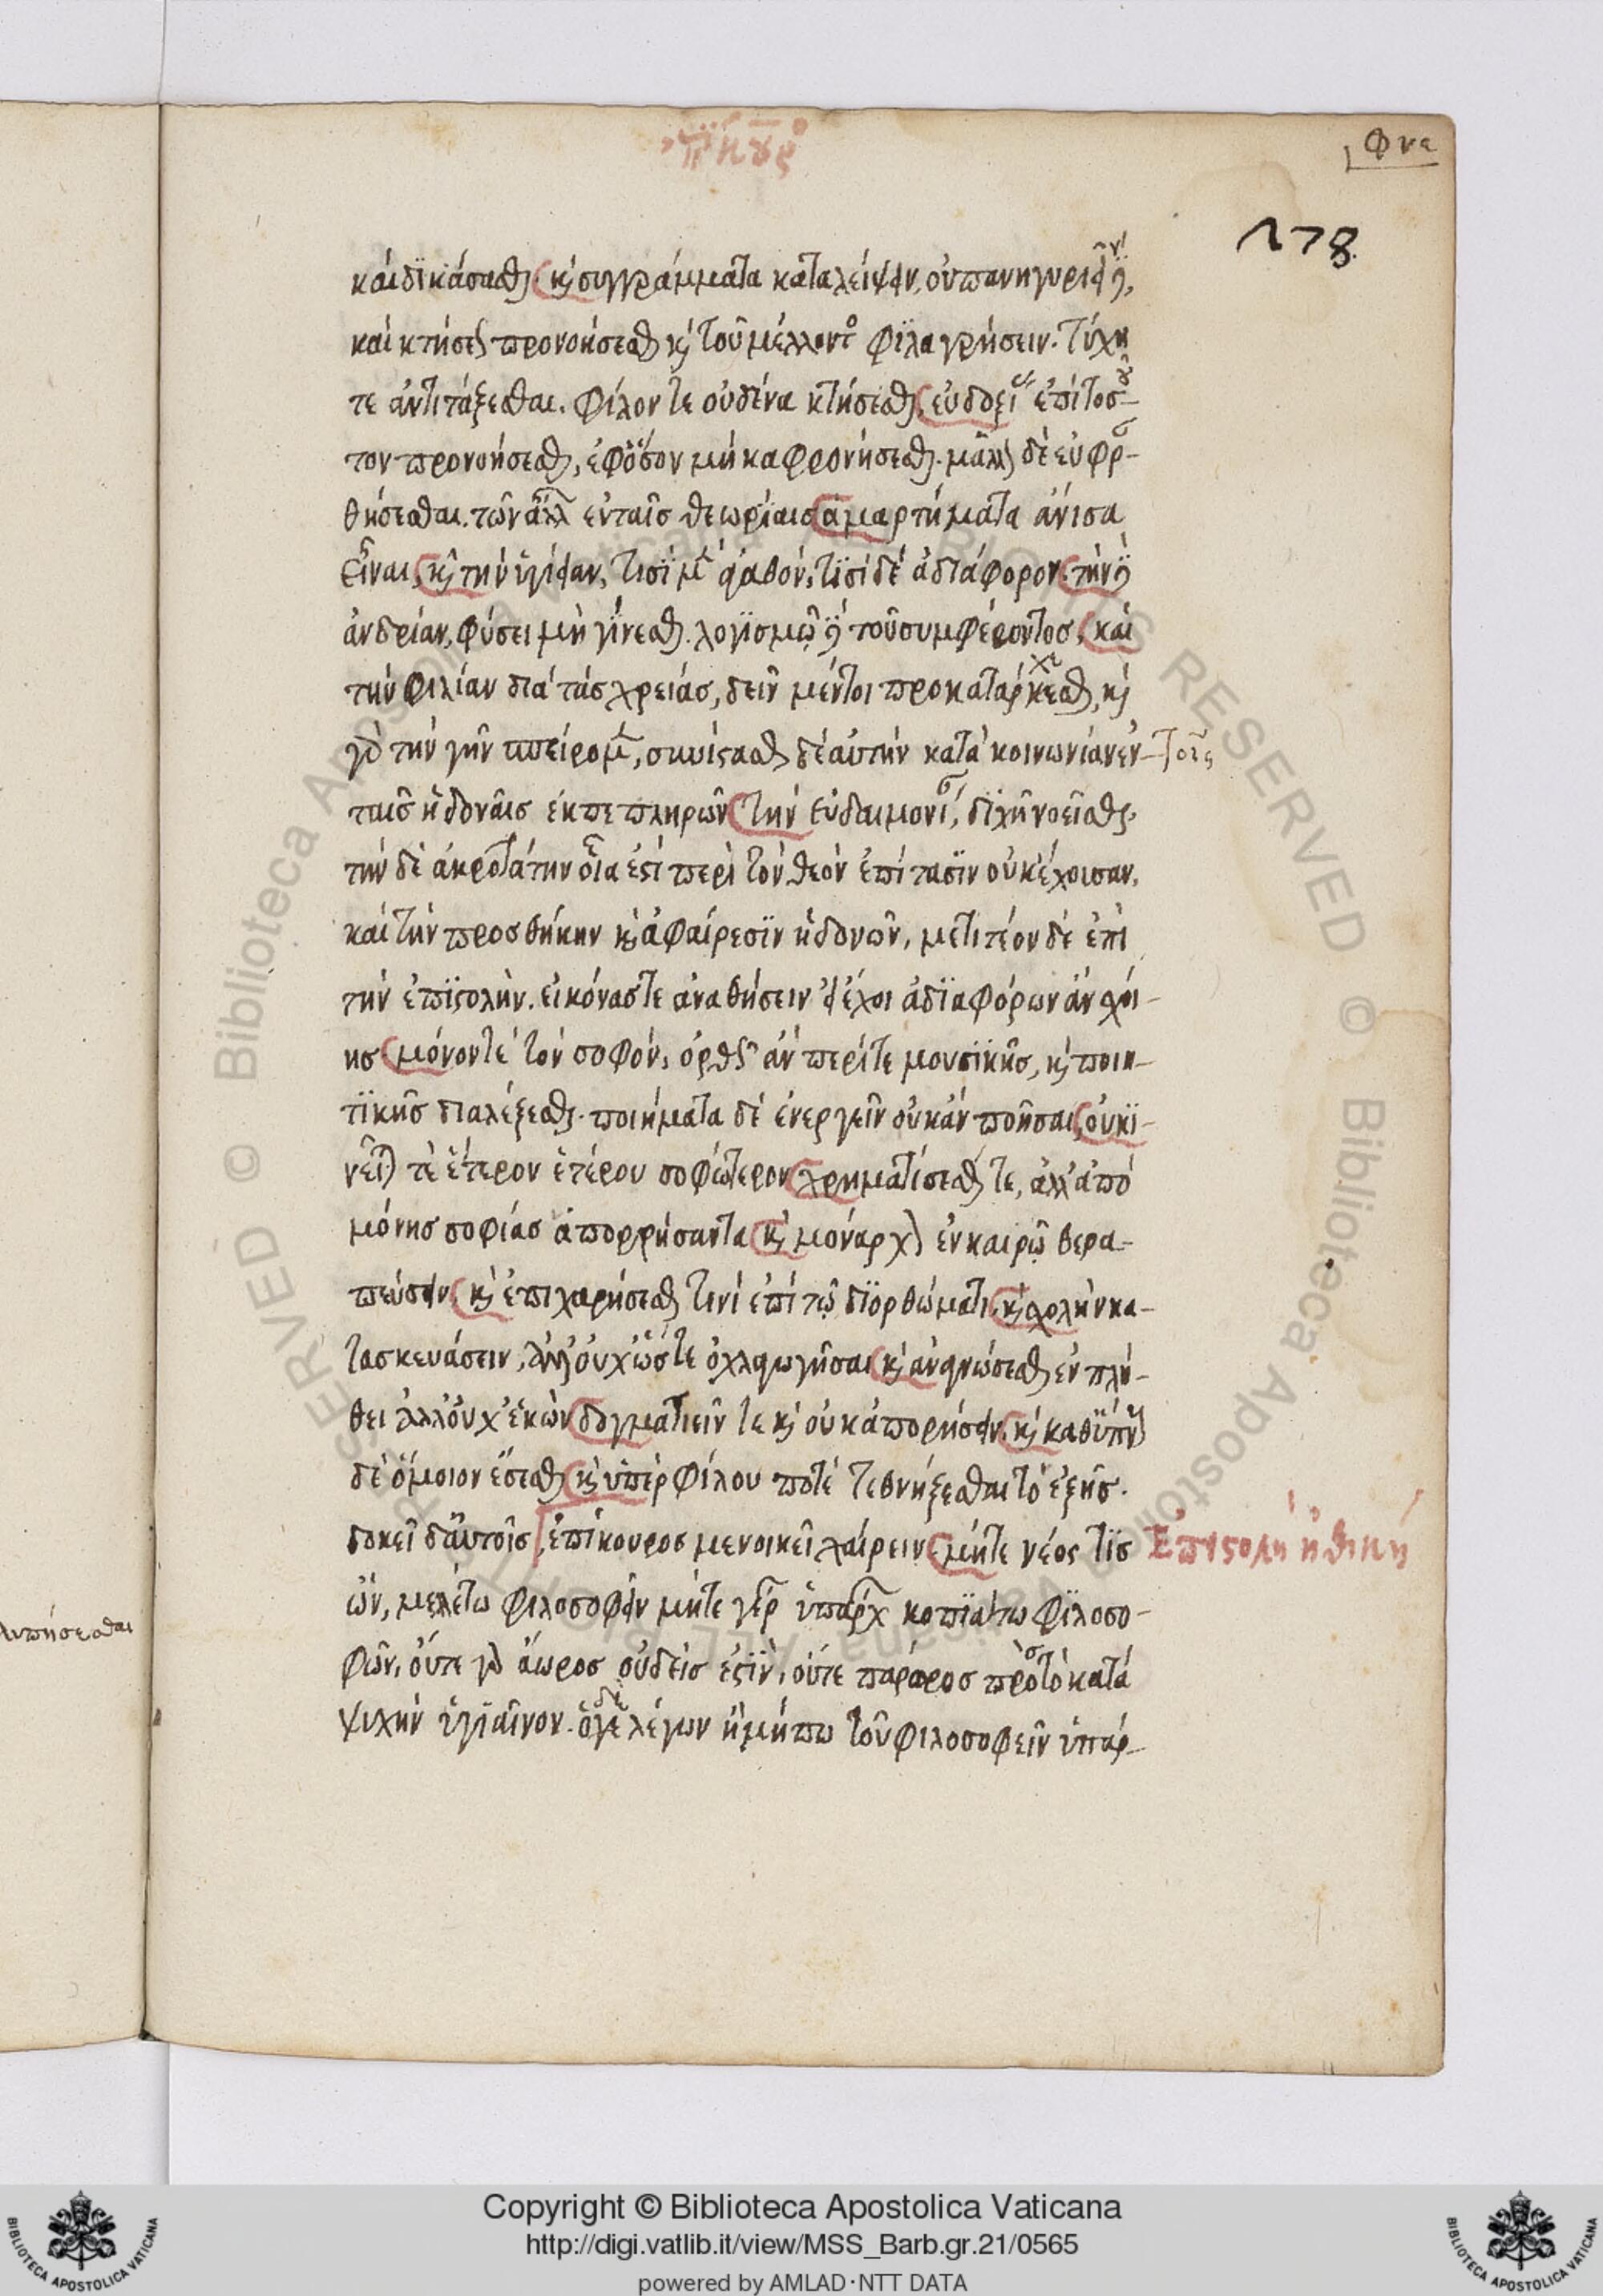 ἐπίκουρος
φνα
278
καὶ δϊκάσασθαι (καὶ συγγράμματα καταλείψειν, οὐ πανηγυριεῖν δὲ,
καὶ κτήσεως προνοήσεσθαι καὶ τοῦ μέλλοντος φϊλαγρήσειν. τύχη
τε ἀντιτάξεσθαι. φίλον τε οὐδένα κτήσεσθαι (εὐδοξί ἐπὶ τοσοῦ-
τον προνοήσεσθαι, ἐφ' ὅσον μὴ καφρονήσεσθαι. μᾶλλον δὲ εὐφρ-
θήσεσθαι. τῶν ἄλλ ἐν ταῖς θεωρΐαις (ἁμαρτήματα ἄνισα
εἶναι, (καὶ τὴν ὑγίειαν, τισϊ μὲν ἀγαθὸν, τϊσὶ δὲ ἀδιάφορον (τὴν δὲ
ἀνδρίαν, φύσει μὴ γίνεσθαι. λογϊσμῷ δὲ τοῦ συμφέροντος, (καὶ
τὴν φιλίαν διὰ τὰς χρείας, δεῖν μέντοι προκατάρκεσθαι, καὶ
χ
γὰρ τὴν γῆν σπείρομεν, συνίστασθαι δὲ αὐτὴν κατὰ κοινωνίαν ἐν τοῖς
ταῖς ἡδοναῖς ἐκπεπληρῶν (τὴν εὐδαιμονί, δϊχῆ νοεῖσθαι.
τὴν δὲ ἀκροτάτην οἵα ἐστὶ περὶ τὸν θεὸν ἐπίτασϊν οὐκ ἔχουσαν,
καὶ τὴν προσθήκην καὶ ἀφαίρεσϊν ἡδονῶν, μετιτέον δὲ ἐπὶ
τὴν ἐπϊστολὴν. εἰκόνας τε ἀναθήσειν εἰ ἔχοι ἀδϊαφόρων ἂν σχοί-
ης (μόνον τὲ τὸν σοφὸν, ὀρθῶς ἂν περί τε μουσϊκῆς, καὶ ποιη-
τϊκῆς διαλέξεσθαι. ποιήματα δὲ ἐνεργεῖν οὐκ ἂν ποῆσαι, (οὐ κϊ-
νεῖται τὲ ἕτερον ἑτέρου σοφώτερον (χρηματίσεσθαί τε, ἀλλ' ἀπὸ
μόνης σοφίας ἀπορρήσαντα (καὶ μόναρχον ἐν καιρῷ θερα-
πεύσειν (καὶ ἐπιχαρήσεσθαί τινι ἐπὶ τῷ δϊορθώματι (καὶ σχολὴν κα-
τασκευάσειν, ἀλλ' οὐχ ὥστε ὀχλαγωγῆσαι (καὶ ἀναγνώσεσθαι ἐν πλή-
θει ἀλλ' οὐχ ἑκὼν (δογματιεῖν τε καὶ οὐκ ἀπορήσειν. (καὶ καθϋπν
δὲ ὅμοιον ἔσεσθαι (καὶ ὑπὲρ φίλου ποτὲ τεθνήξεσθαι τὸ ἑξῆς.
δοκεῖ δ' αὐτοῖς [ἐπίκουρος μενοικεῖ χαίρειν (μήτε νέος τϊς
Ἐπιστολὴ ἠθικὴ
ὢν, μελέτω φιλοσοφεῖν μήτε γέρ ὑπάρχ κοπϊάτω φϊλοσο-
φῶν, οὔτε γὰρ ἄωρος οὐδείς ἐστϊν, οὔτε πάρωρος πρὸς τὸ κατὰ
ψυχὴν ὑγιαῖνον. ὁ δὲ λέγων ἢ μήπω τοῦ φιλοσοφεῖν ὑπάρ-
λυπήσεσθαι
Copyright © Biblioteca Apostolica Vaticana
http://digi.vatlib.it/view/MSS_Barb.gr.21/0565
powered by AMLAD·NTT DATA